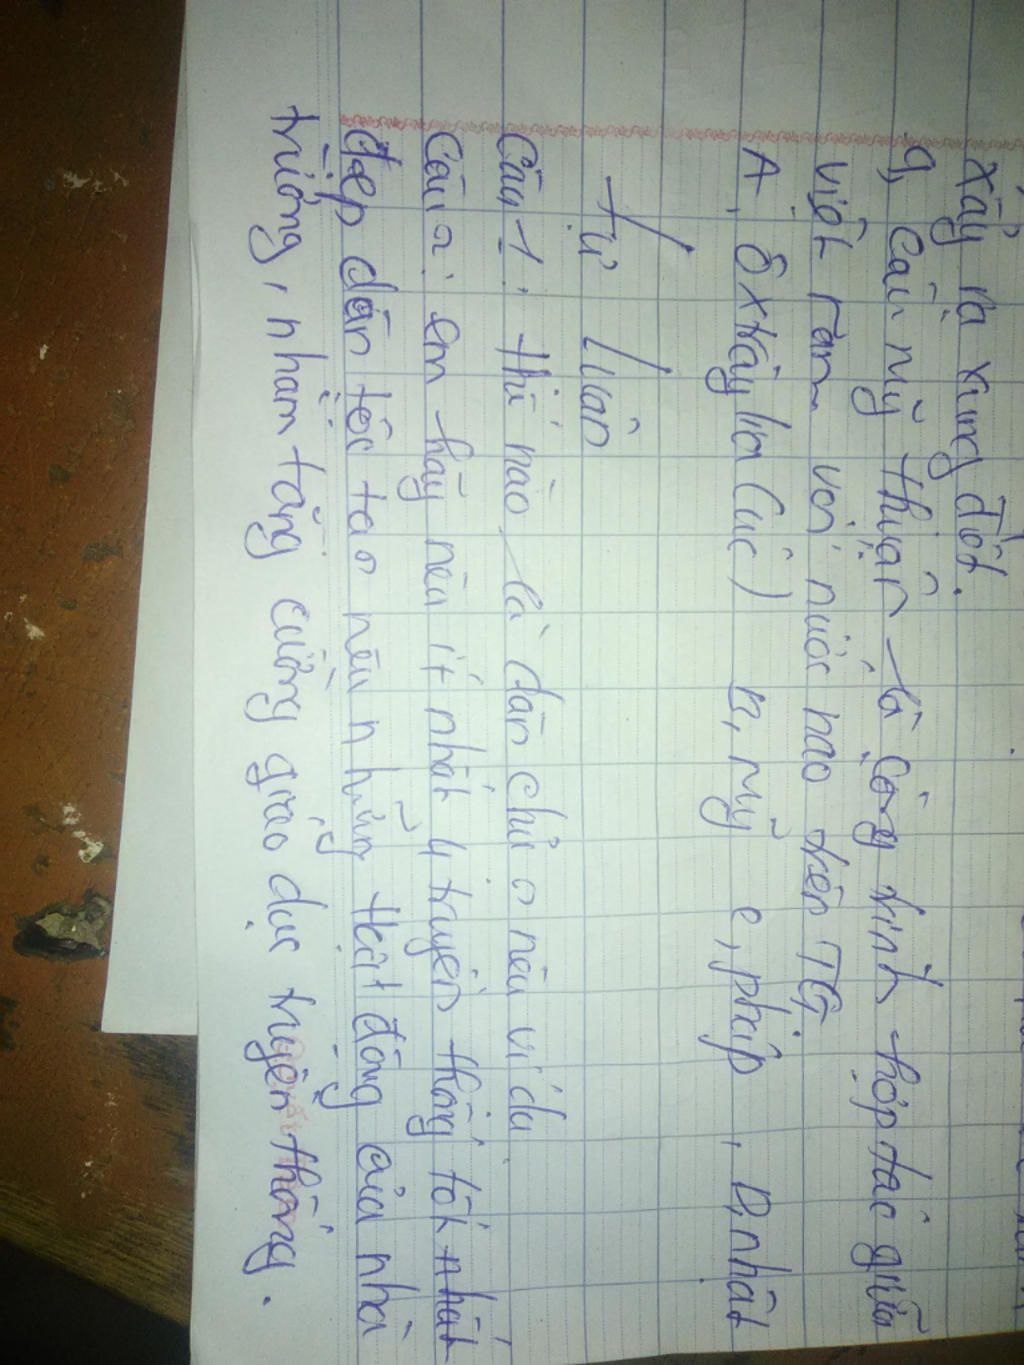 xảy ra xung đột.
9, Cầu mỹ thuận là công trình hợp tác giữa
việt nam với nước nào trên TG.
A, ôxtrâylia (úc) B, Mỹ c, pháp, D, nhật
Tự luận
Câu 1: thế nào là dân chủ? nêu ví dụ.
Câu 2: em hãy nêu ít nhất 4 truyền thống tốt nhất
đẹp dân tộc ta? nêu những hoạt động của nhà
trường, nhằm tăng cường giáo dục truyền thống.